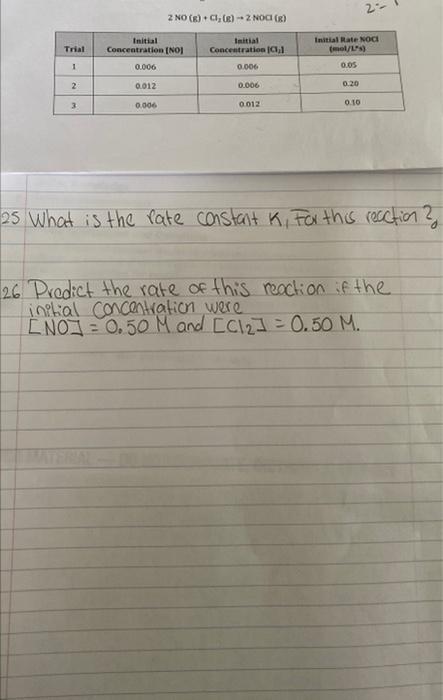 2--1
2 NO (g) + Cl₂ (g) → 2 NOCl (g)
Trial Initial Concentration [NO] Initial Concentration [Cl₂] Initial Rate NOCl (mol/L*s)
1 0.006 0.006 0.05
2 0.012 0.006 0.20
3 0.006 0.012 0.10
25 What is the rate constant K, For this reaction?
26 Predict the rate of this reaction if the
initial concentration were
[NO] = 0.50 M and [Cl2] = 0.50 M.